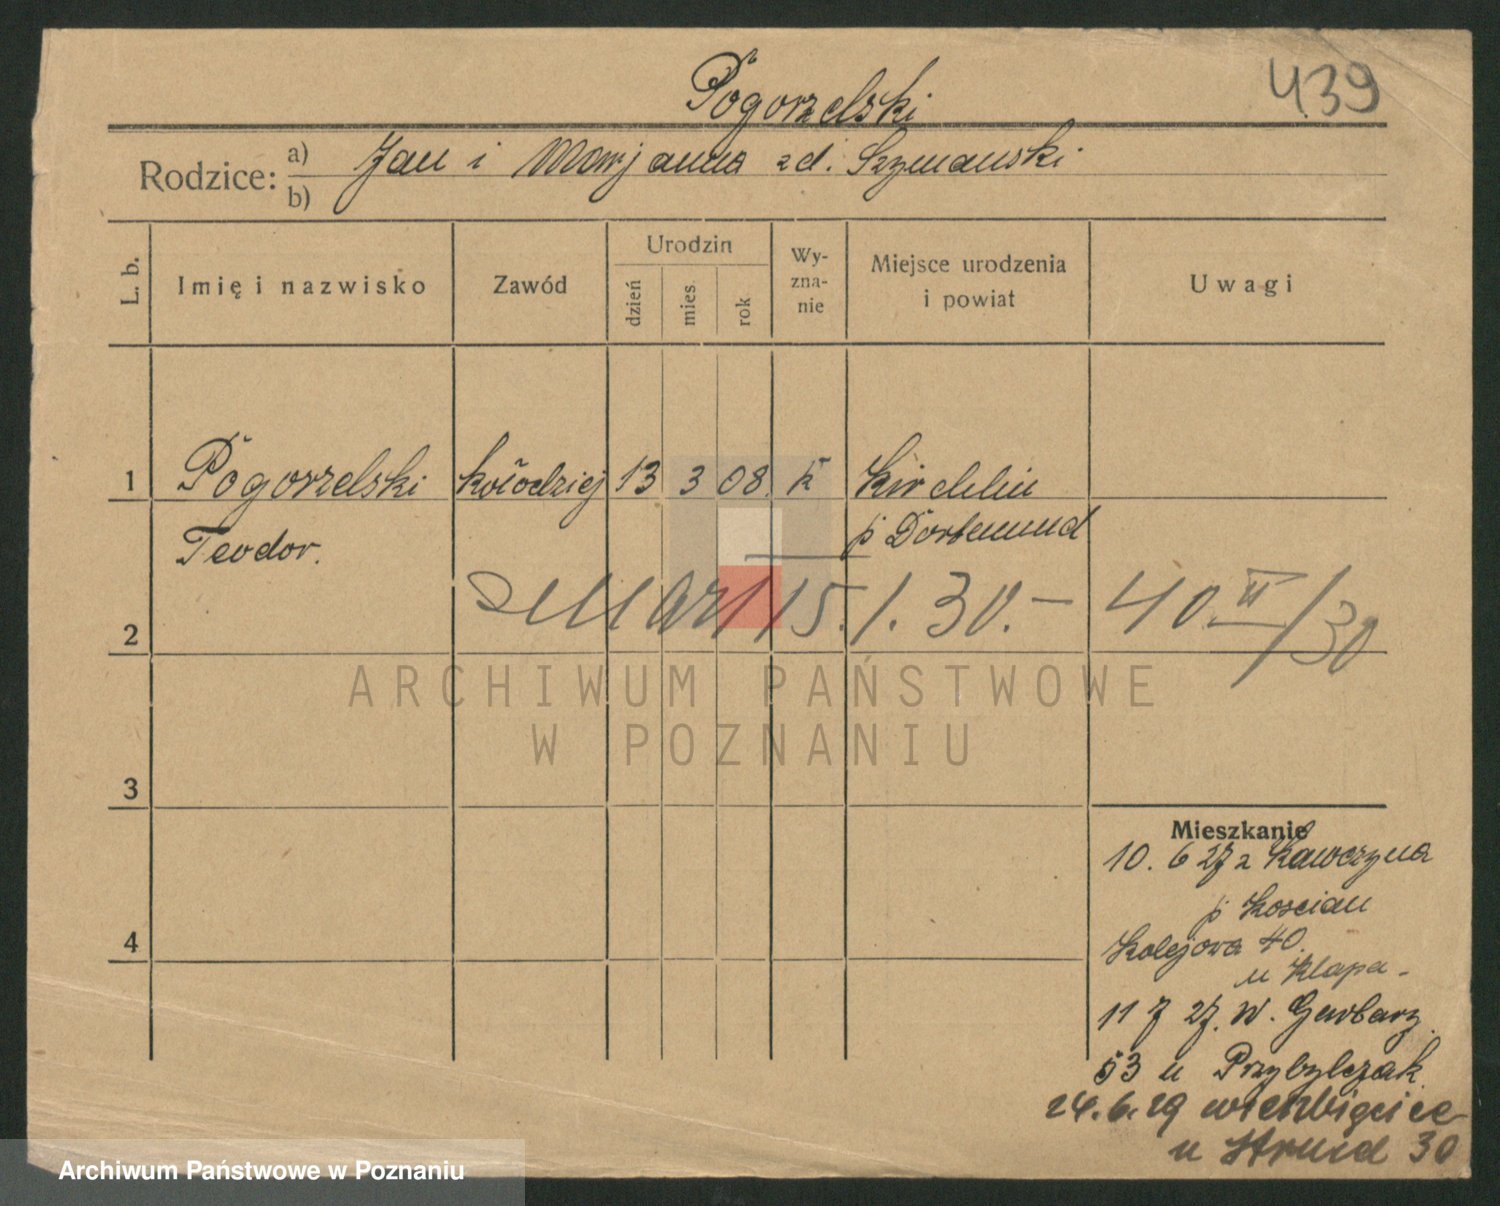 Pogorzelski
439
Rodzice: a) b) Jan i Marjanna zd. Szymanski
L. b.
Imię i nazwisko
Zawód
Urodzin
dzień mies rok
Wy-
zna-
nie
Miejsce urodzenia
i powiat
Uwagi
1 Pogorzelski kołodziej 13 3 08. k Kirchlin
Teodor. p Dortmund
Zmarł 15.1.30.- 40 II/30
2
ARCHIWUM PAŃSTWOWE
W POZNANIU
3
Mieszkanie
10. 6 27 z Kawczyna
p Koscian
4
Kolejowa 40.
u Klapa -
11 7 27. W. Garbary
53 u Przybylczak
24. 6. 29
u 30
Archiwum Państwowe w Poznaniu